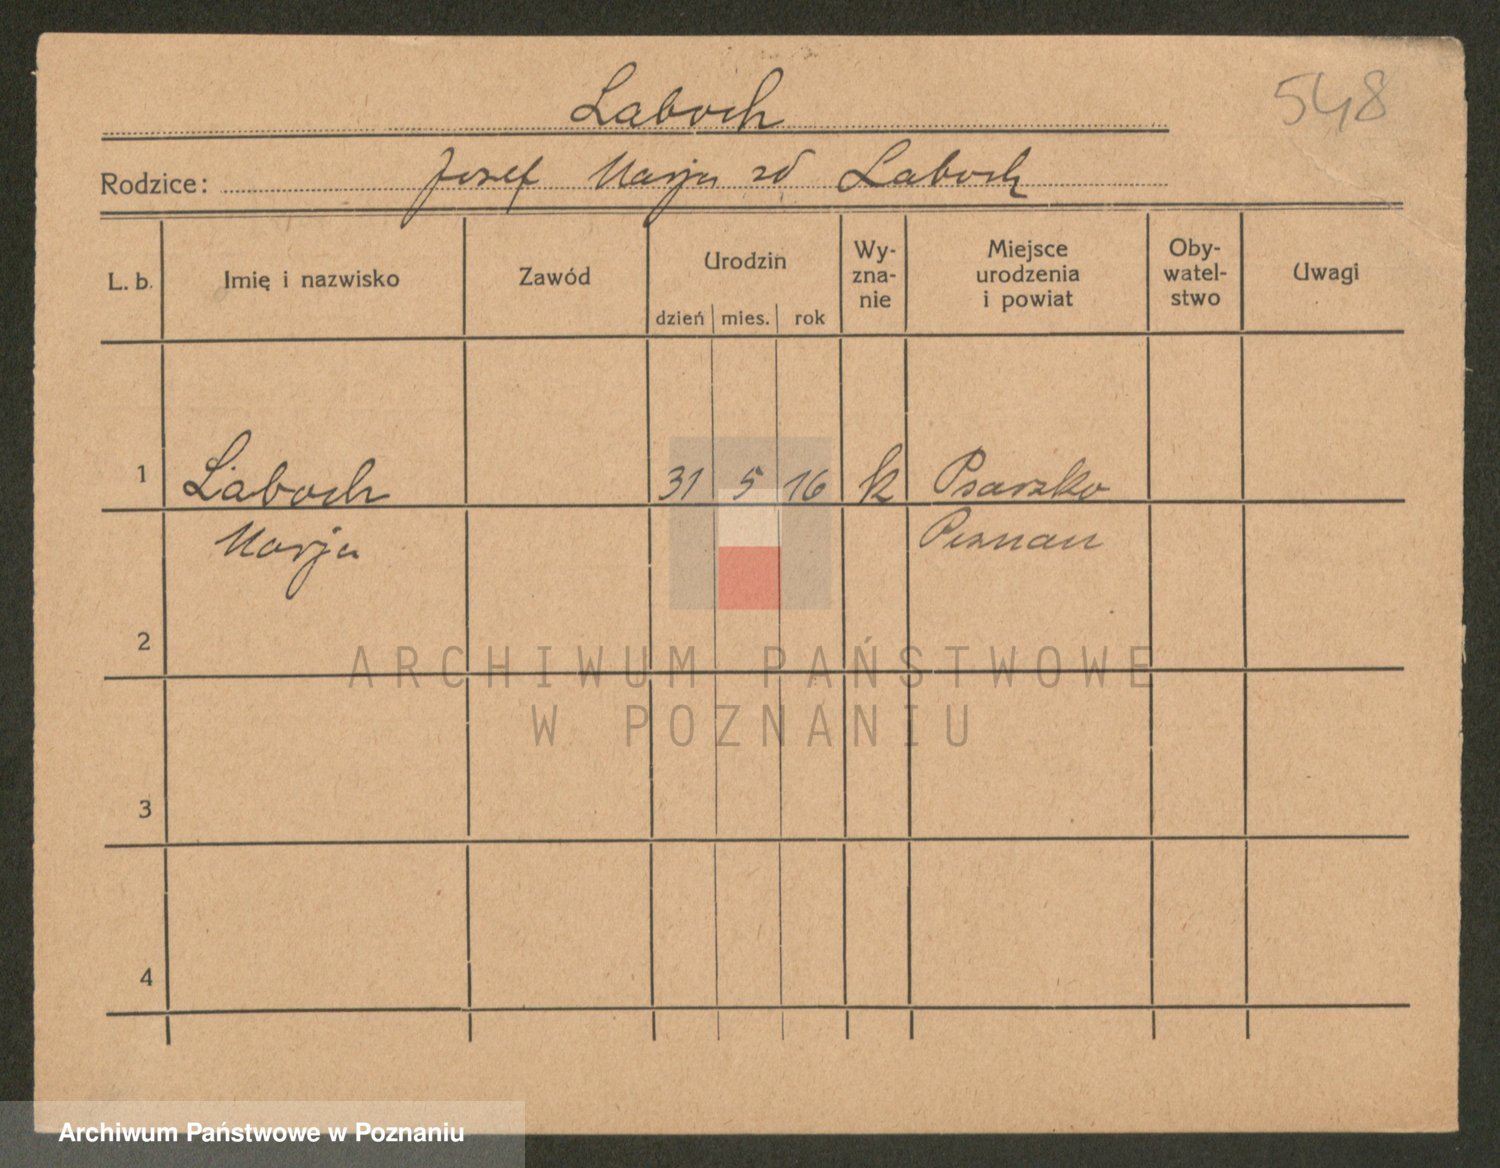 548
Laboch
Rodzice: Josef Marja zd Laboch
L. b. Imię i nazwisko Zawód Urodzin dzień mies. rok Wy-zna-nie Miejsce urodzenia i powiat Oby-watel-stwo Uwagi
1 Laboch 31 5 16 k Psarsko
Marja Poznan
2
3
4
ARCHIWUM PAŃSTWOWE
W POZNANIU
Archiwum Państwowe w Poznaniu